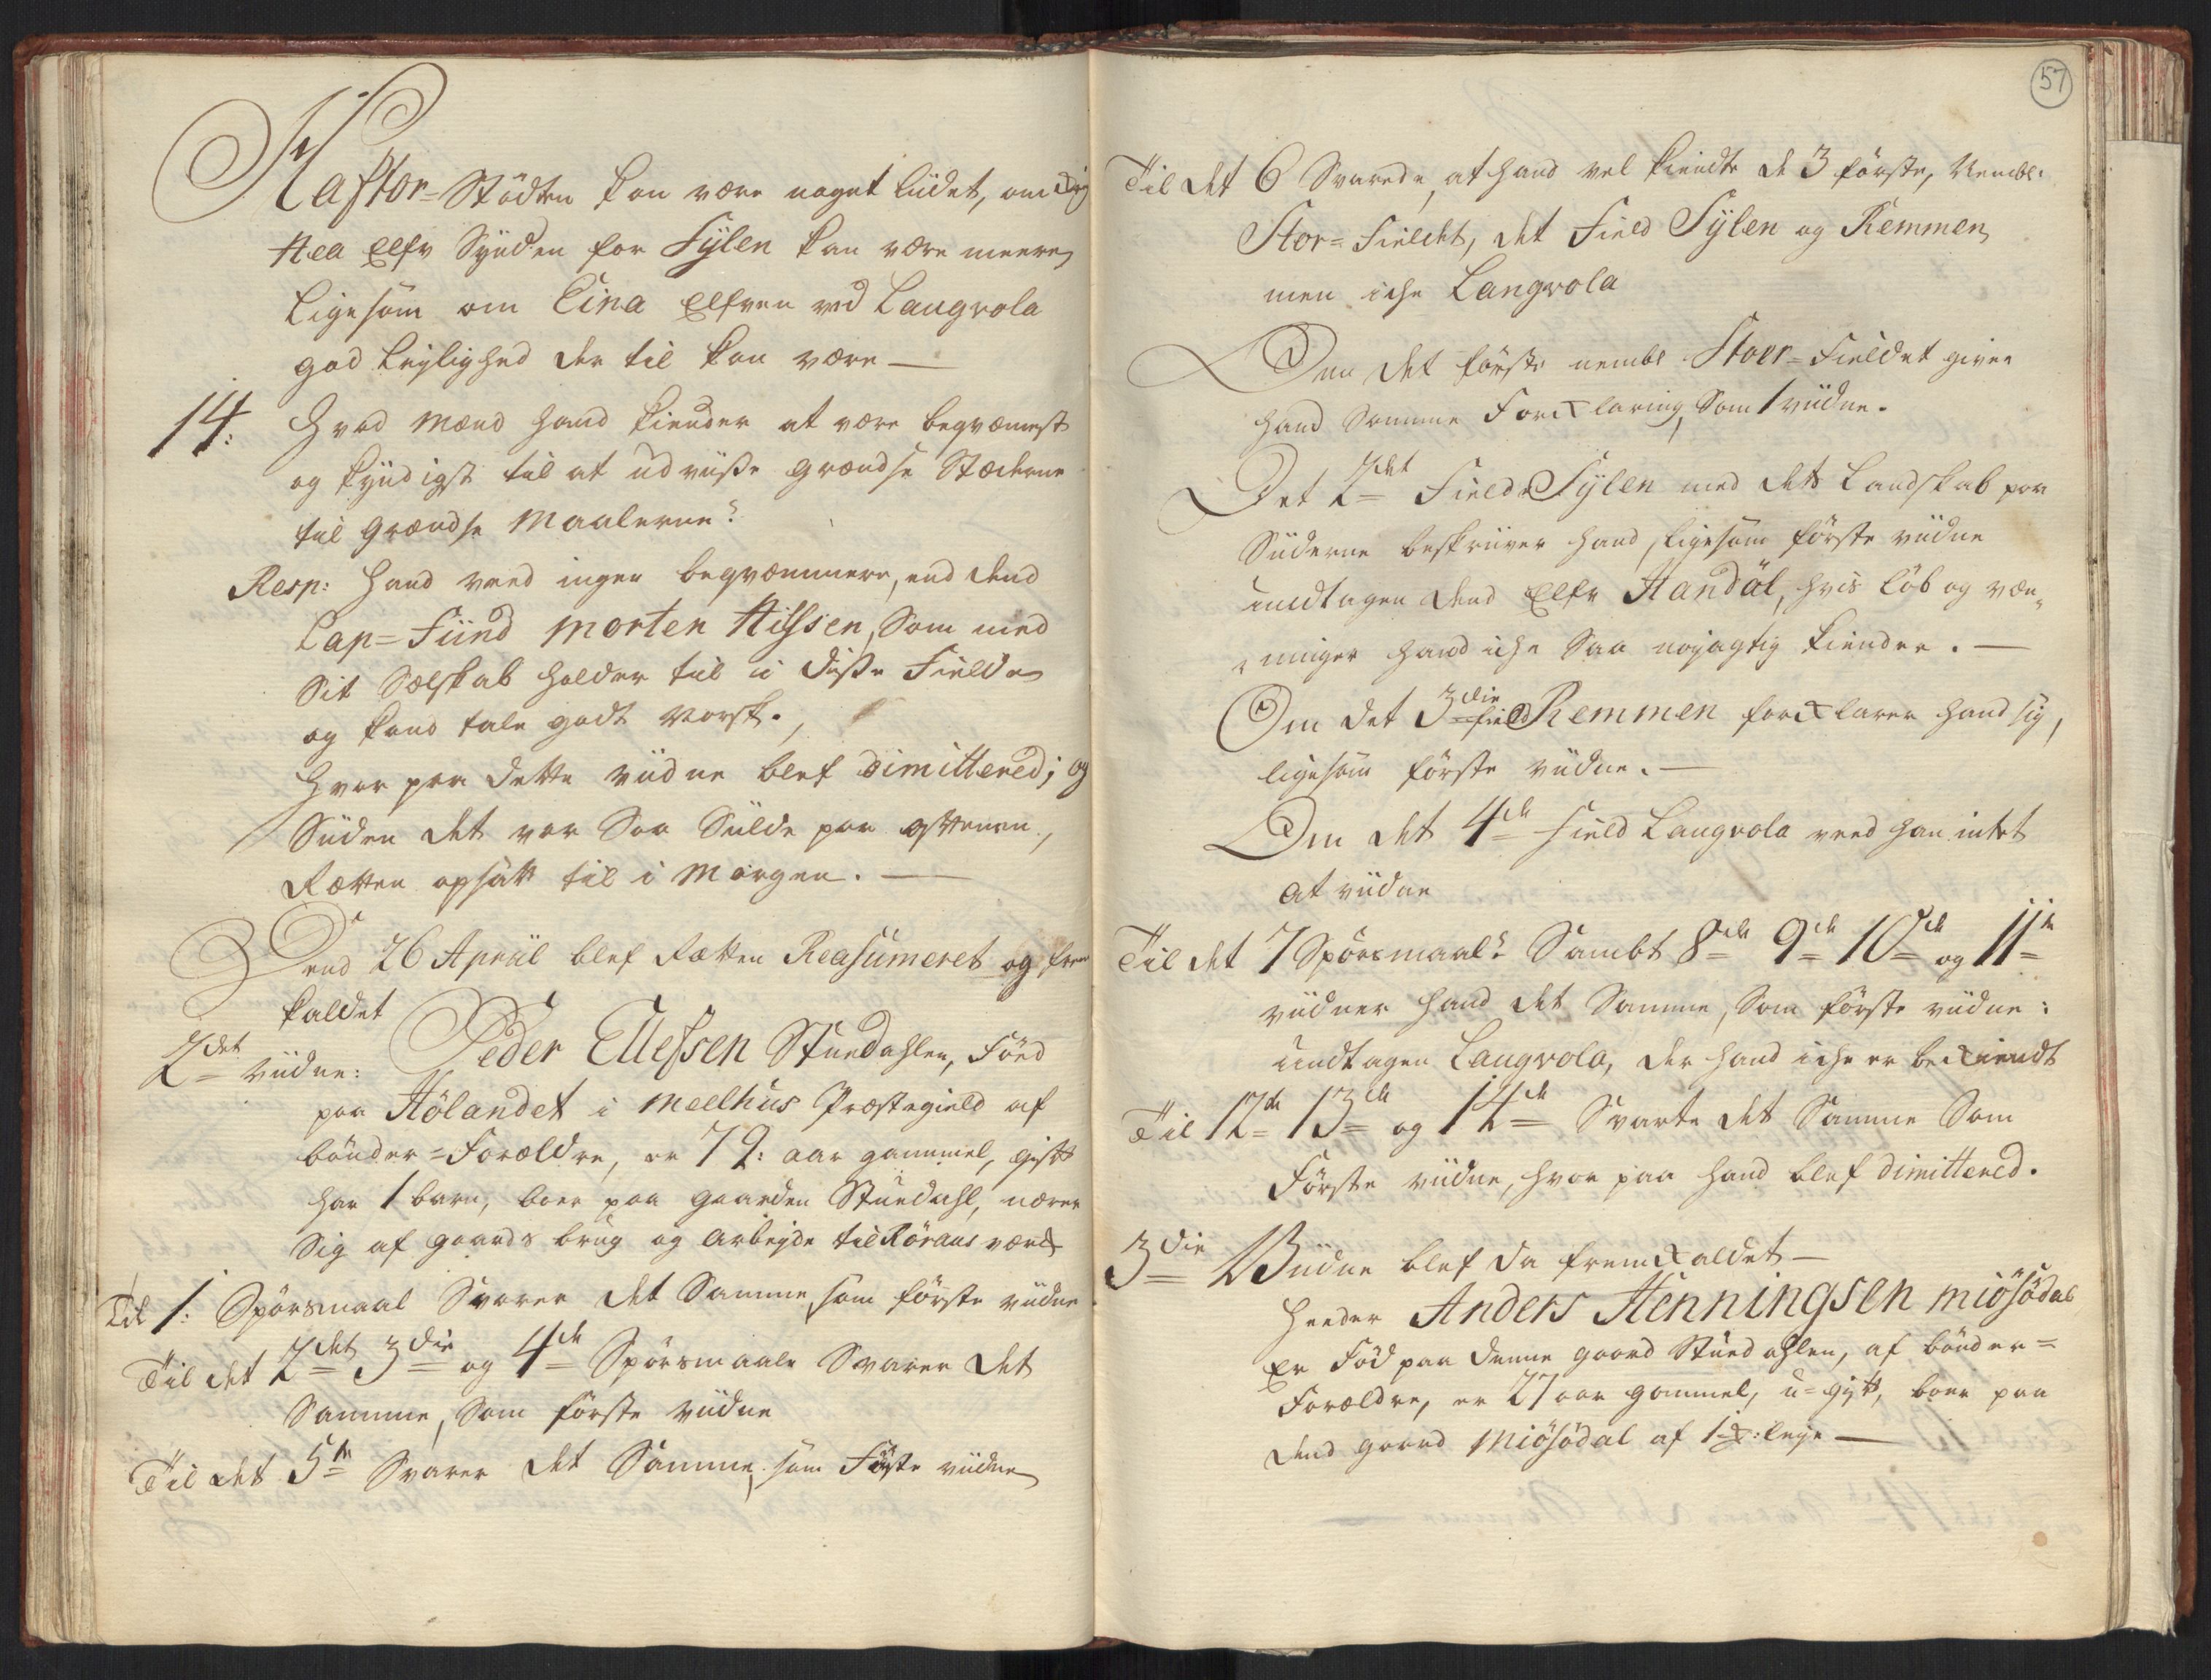 Kastor-Stödten kan være noget lüdet, om
Nea Elfv Synden for Sylen kan være meere,
Ligesom om Eina Elfven ved Langvola
god Leylighed der til kan være —
14: Hvad Mænd hand kiender at være begvæmest
og kyndigst til at udviisse Grændse Stæderne
til Grændse Maalerne?
Resp: Hand veed ingen begvæmmere, end dend
Lap-Find Morten Nilssen, Som med
Sit Selskab holder til i disse Fielde
og kand tale godt Norsk.,
Hvor paa dette viidne blef dimittered; og
Siiden det var Saa Siilde paa Aftenen,
Rætten opsatt til i Morgen. —
Dend 26 Apriil blef Rætten Reasumeret og frem
kaldet
2det viidne: Peder Ellefsen Stuedahlen, Föed
paa Hölandet i Meelhus Præstegield af
bönder-Forældre, er 72: aar gammel, gift
har 1 barn, boer paa gaarden Stuedahl, nærer
Sig af gaards brug og Arbeyde til Röraas værk
Til 1: Spörsmaal Svarer det Samme som förste viidne
Til det 2det 3die og 4de Spörsmaale Svarer det
Samme, Som förste viidne
Til det 5te Svarer det Samme, som Föste viidne
57
Til det 6 Svarede, at hand vel kiendte de 3 förste, Nembl:
Stor-Fieldet, det Field Sylen og Remmen,
men iche Langvola
Om det förste nembl Stoer-Fieldet giver
hand Samme Forclaring, Som 1 viidne.
Det 2det Field Sylen med dets Landskab paa
Siiderne beskriiver hand, ligesom förste viidne
undtagen dend Elfv Handöl, hvis löb og væn-
-ninger hand iche Saa nöyagtig kiender. —
Om det 3die field Remmen forclarer hand sig,
ligesom förste viidne. —
Om det 4de Field Langvola veed han intet
at viidne
Til det 7 Spörsmaal: Sambt 8de 9de 10de og 11te
viidner hand det Samme, Som förste viidne:
undtagen Langvola, der hand iche er beckiendt
Til 12te 13de og 14de Svarte det Samme Som
Förste viidne, hvor paa hand blef dimittered.
3die Viidne blef da fremkaldet —
Heeder Anders Henningsen Miösödal
Er Föd paa denne gaard Stuedahlen, af bönder-
Forældre, er 27 aar gammel, u-gift, boer paa
dend gaard Miösödal af 1 : leye —